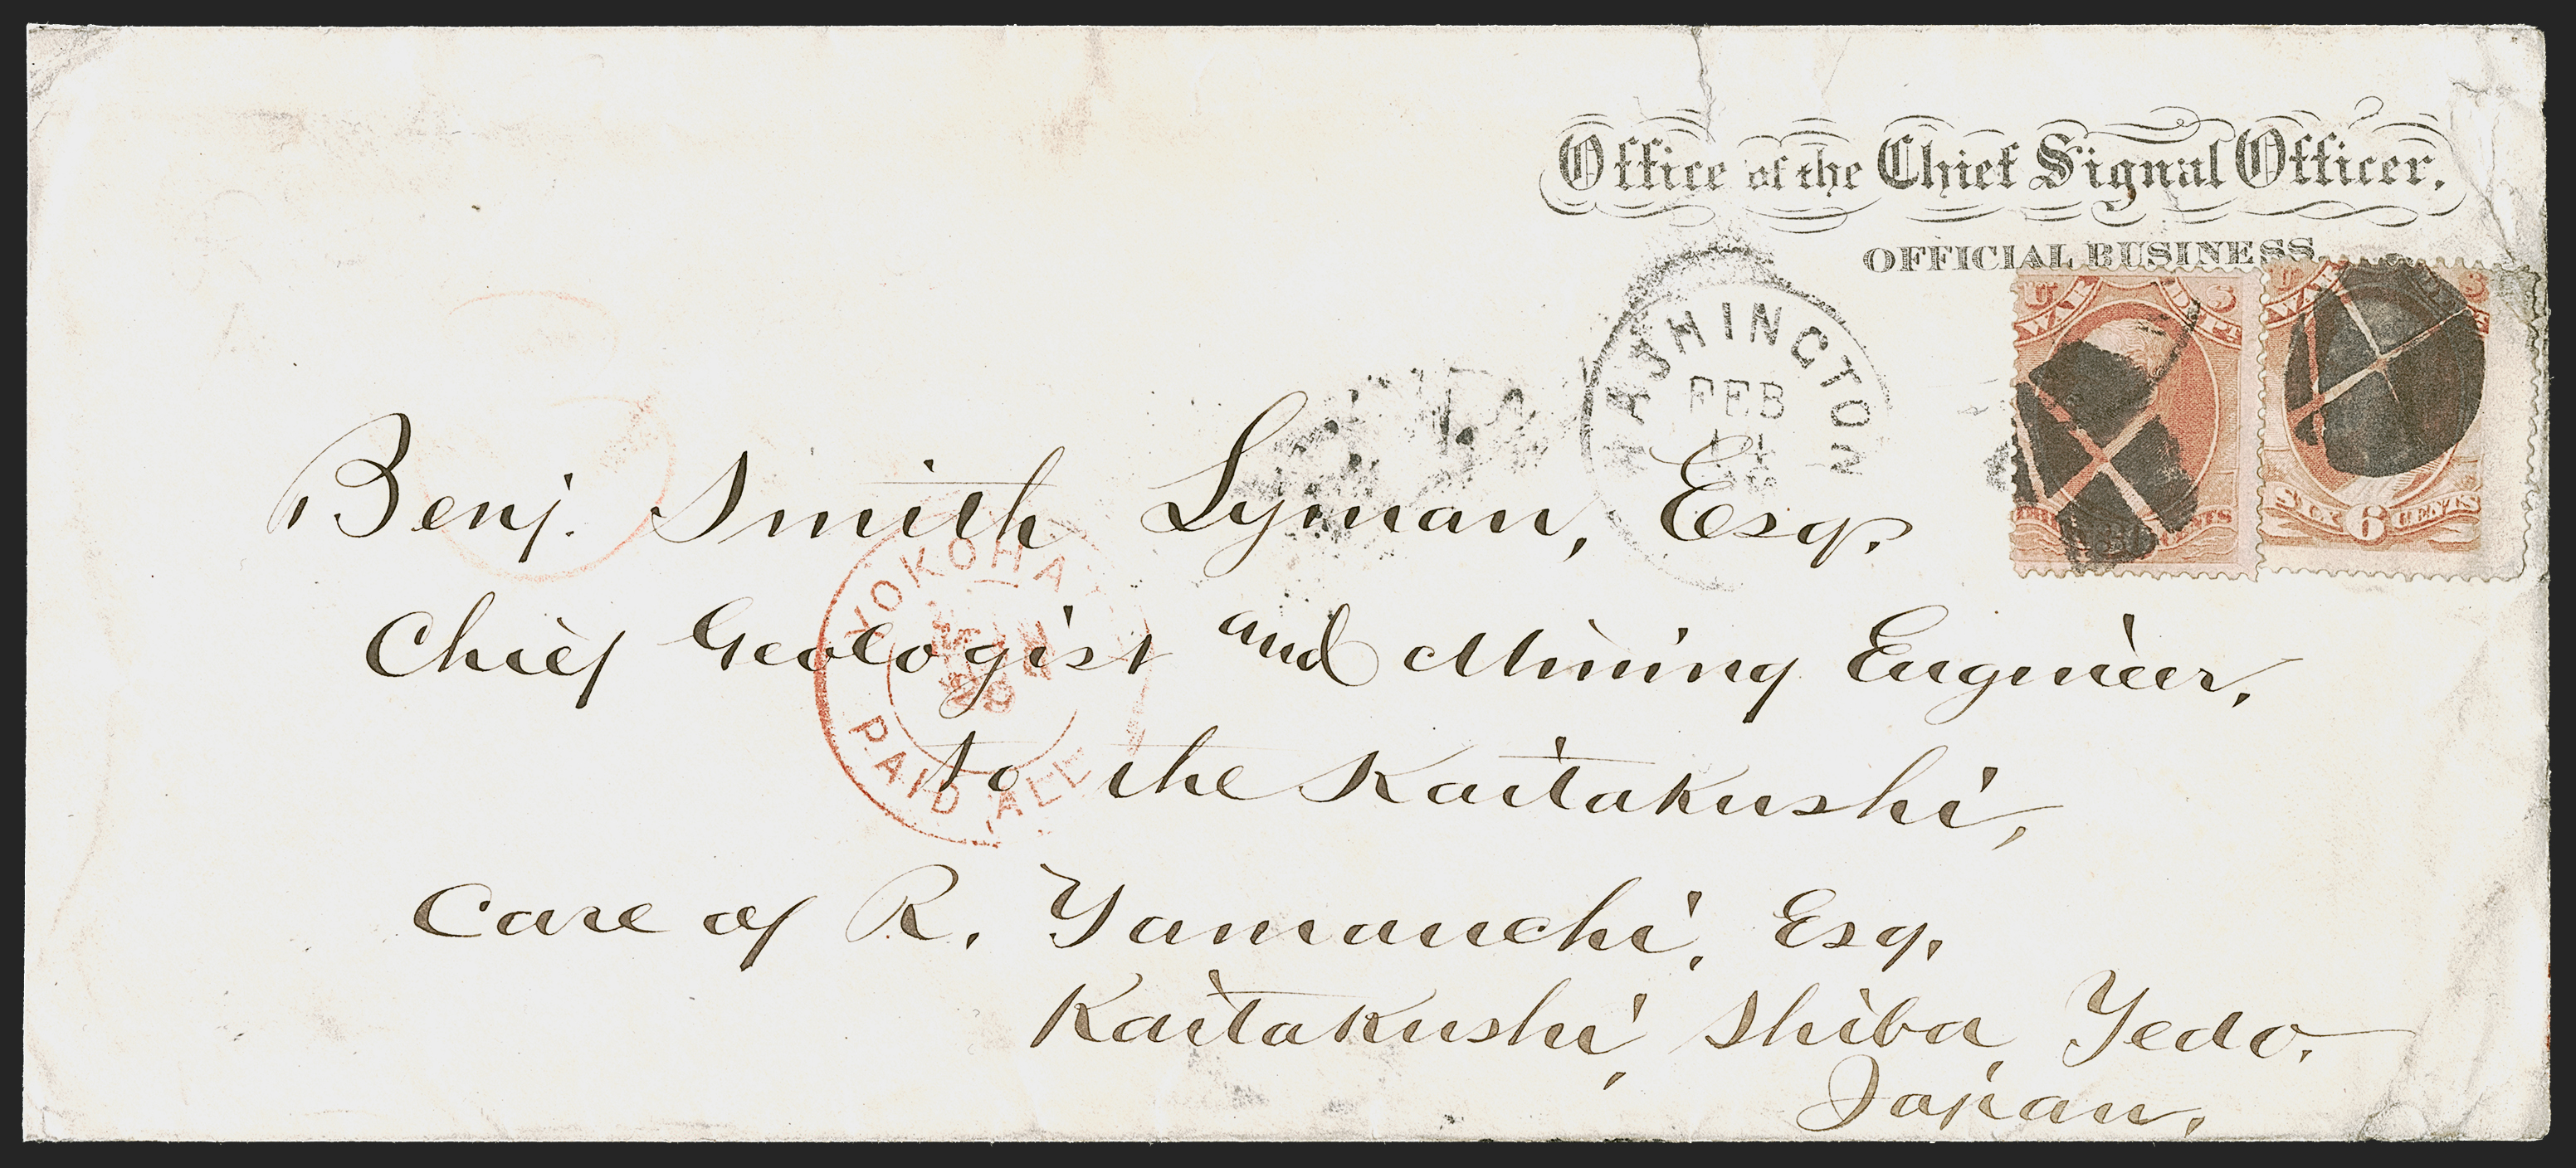 Office of the Chief Signal Officer.
OFFICIAL BUSINESS.
WASHINGTON
FEB
14
U S
WAR DEPT
U S
WAR
SIX 6 CENTS
Benj. Smith Lyman, Esq.
Chief Geologist and Mining Engineer,
to the Kaitakushi,
Care of R. Yamauchi, Esq.
Kaitakushi, Shiba, Yedo.
Japan.
YOKOHA
PAID ALL